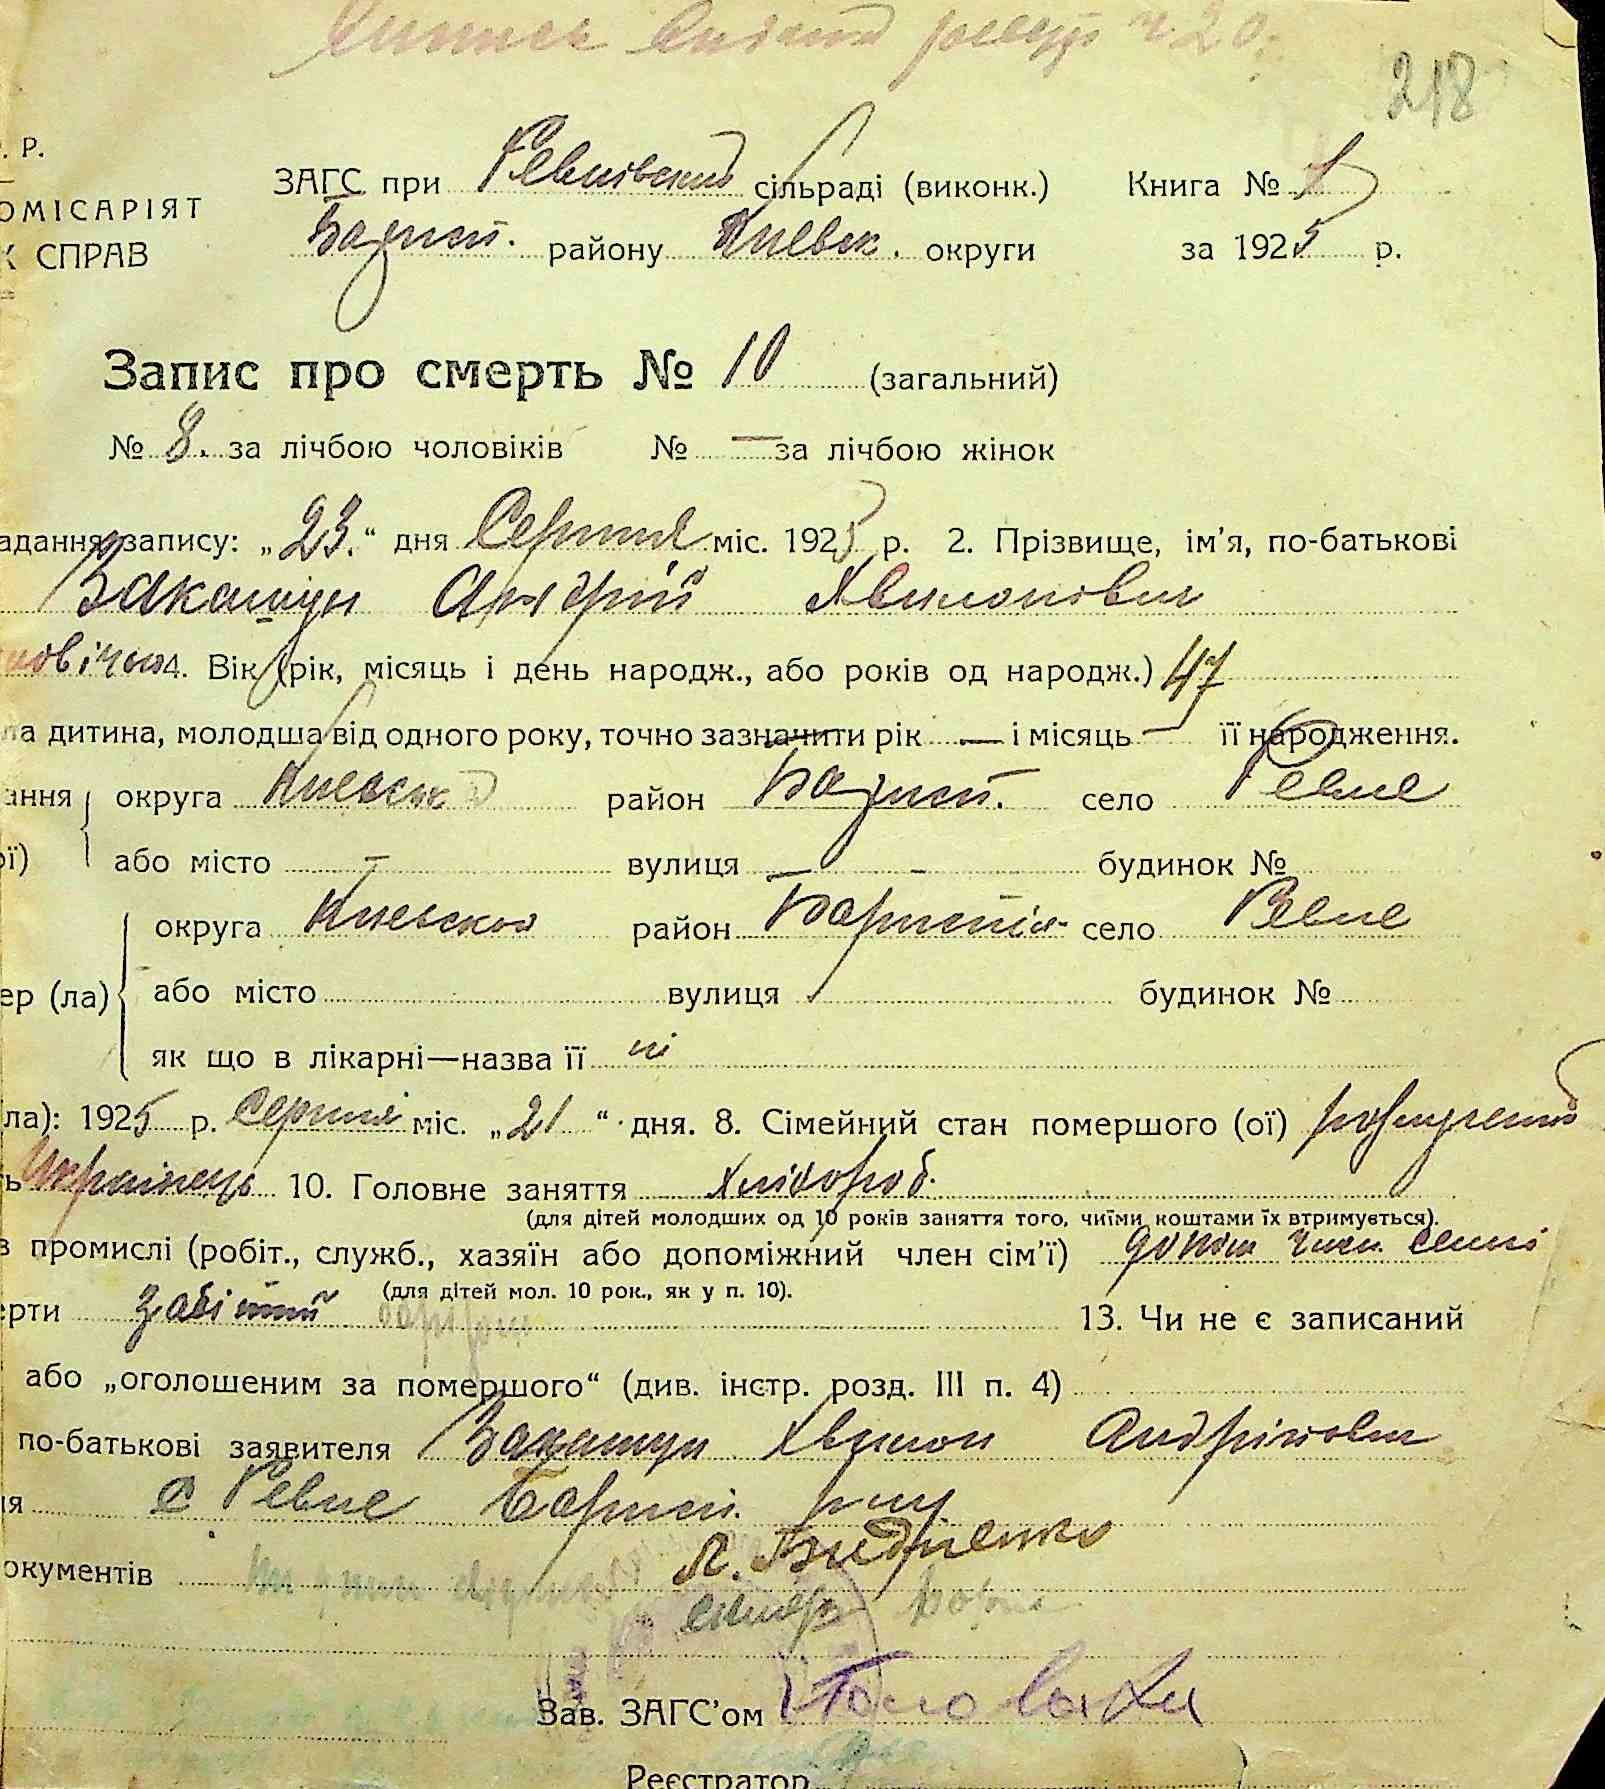 218
. Р.
ОМІСАРІЯТ
К СПРАВ
ЗАГС при Ревнівський сільраді (виконк.) Книга № 1
району Киевск. округи за 1925 р.
Запис про смерть № 10 (загальний)
№ 8. за лічбою чоловіків № — за лічбою жінок
адання запису: „23.“ дня Серпня міс. 1925 р. 2. Прізвище, ім’я, по-батькові
Закашун Андрій Хвилонович
4. Вік (рік, місяць і день народж., або років од народж.) 47
ла дитина, молодша від одного року, точно зазначити рік — і місяць — її народження.
ання округа Киевська район село Ревне
ої) або місто — вулиця — будинок №
округа Киевская район село Ревне
ер (ла) або місто вулиця будинок №
як що в лікарні—назва її ні
ла): 1925 р. Серпня міс. „21“ дня. 8. Сімейний стан помершого (ої)
ь Українець 10. Головне заняття Хлібороб.
(для дітей молодших од 10 років заняття того, чиїми коштами їх втримується).
в промислі (робіт., служб., хазяїн або допоміжний член сім’ї) допом. член семьї
(для дітей мол. 10 рок., як у п. 10).
ерти забітий 13. Чи не є записаний
або „оголошеним за помершого“ (див. інстр. розд. III п. 4)
по-батькові заявителя Закашун Хвилон Андріянович
ія с Ревне Борисп. р-ну
окументів
Зав. ЗАГС’ом Головаха
Реєстратор